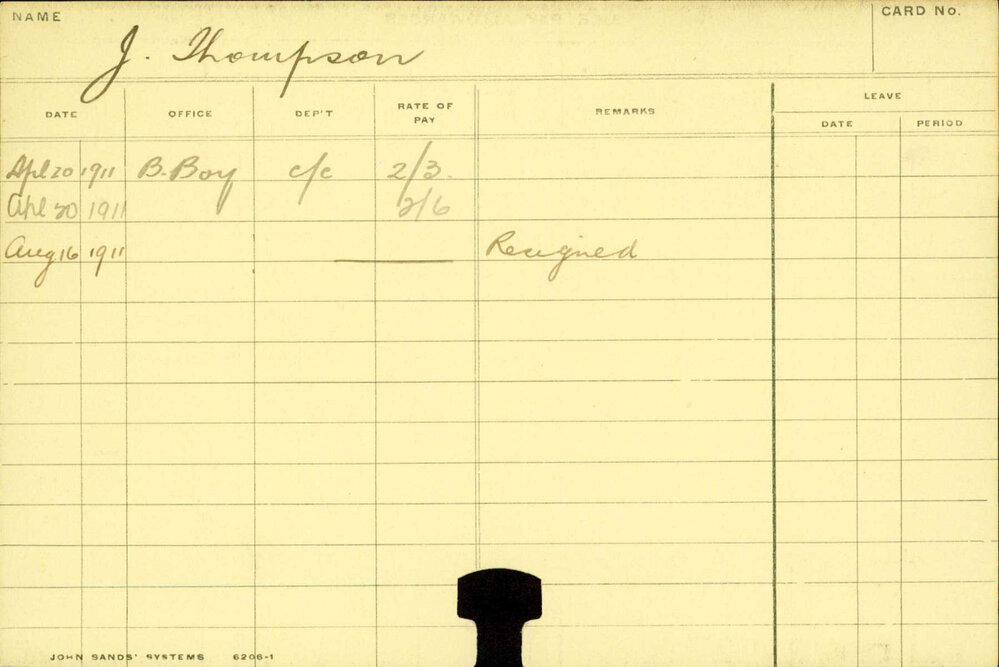 NAME
CARD No.
J. Thompson
DATE OFFICE DEP'T RATE OF PAY REMARKS LEAVE
DATE PERIOD
Apl 20 1911 B. Boy c/c 2/3.
Apl 30 1911 2/6
Aug 16 1911 Resigned
JOHN SANDS' SYSTEMS 6206-1